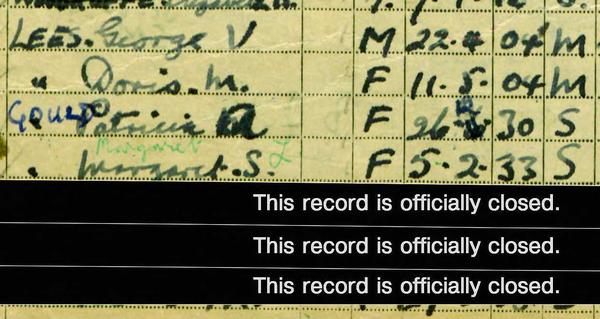 LEES. George V M 22.4 04 M
" Doris. M. F 11. 5. 04 M
GOULD " Patricia F 26 30 S
Margaret L
" Margaret. S. F 5. 2. 33 S
This record is officially closed.
This record is officially closed.
This record is officially closed.